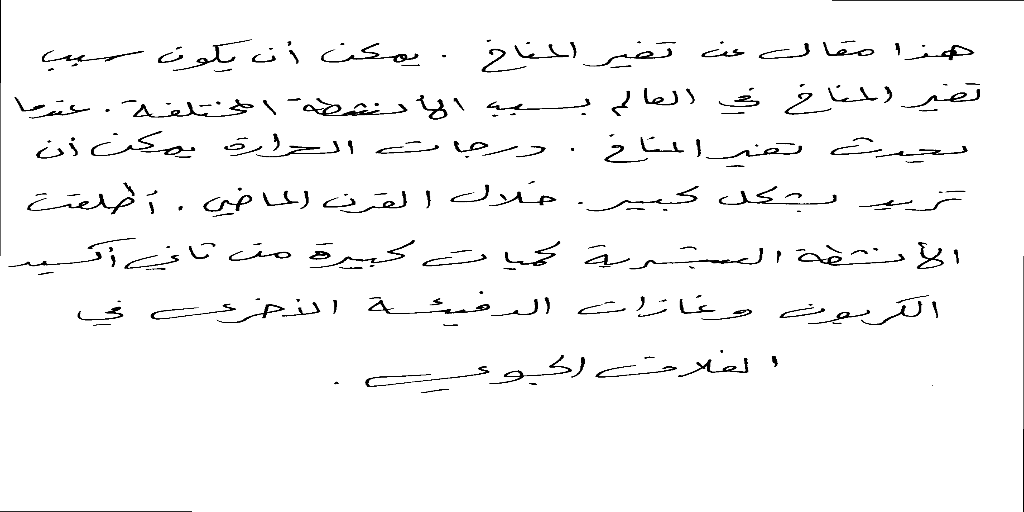 هذا مقال عن تغير المناخ . يمكن أن يكون سبب
تغير المناخ في العالم بسبب الأنشطة المختلفة . عندما
يحدث تغير المناخ . درجات الحرارة يمكن أن
تزيد بشكل كبير . خلال القرن الماضي . أطلقت
الأنشطة البشرية كميات كبيرة من ثاني أكسيد
الكربون وغازات الدفيئة الأخرى في
الغلاف الجوي .